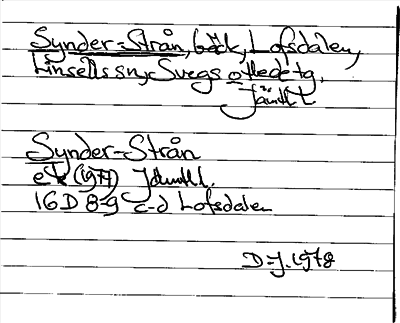 Synder-Strån, bäck, Lofsdalen,
Linsells sn, Svegs
Jämtl
Synder-Strån
ek (1977) Jämtl.
16D 8-9 c-d Lofsdalen
D-J. 1978